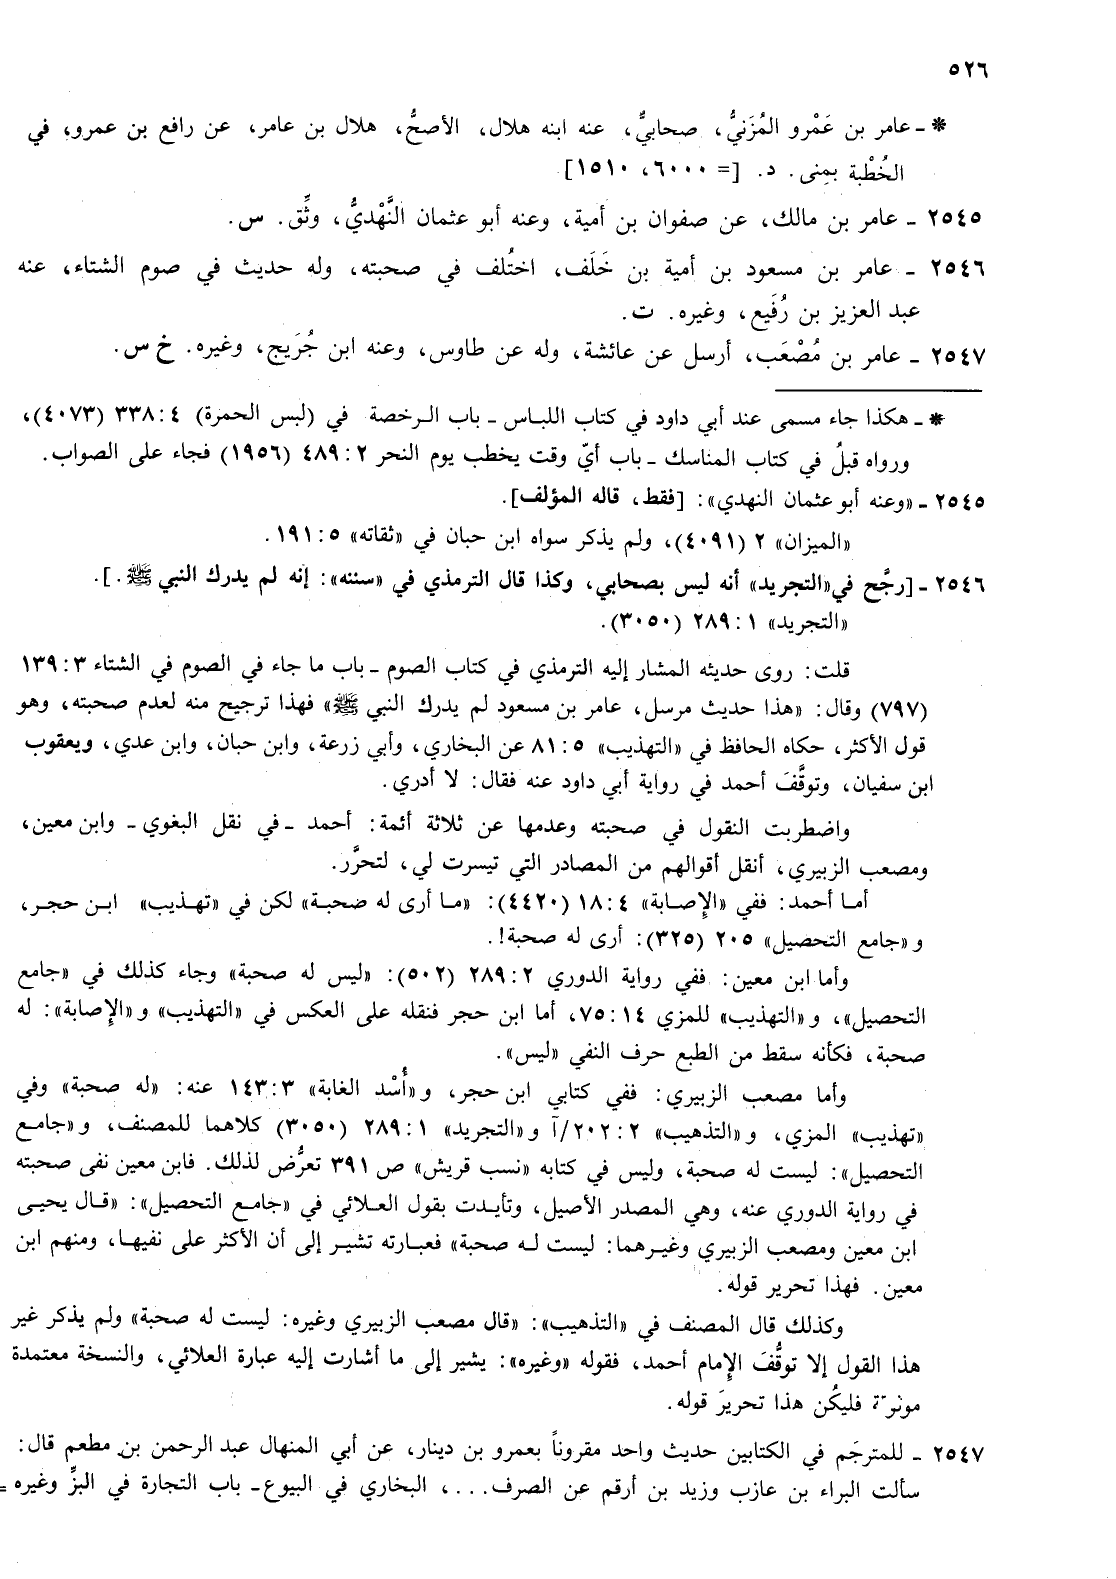 ٥٢٦
* ـ عامر بن عَمْرو المُزَنيُّ، صحابيٌّ، عنه ابنه هلال، الأصحُّ، هلال بن عامر، عن رافع بن عمرو، في
الخُطْبة بمِنى. د. [= ٦٠٠٠، ١٥١٠]
٢٥٤٥ ـ عامر بن مالك، عن صفوان بن أمية، وعنه أبو عثمان النَّهْديُّ، وثِّق. س.
٢٥٤٦ ـ عامر بن مسعود بن أمية بن خَلَف، اختُلف في صحبته، وله حديث في صوم الشتاء، عنه
عبد العزيز بن رُفَيع، وغيره. ت.
٢٥٤٧ ـ عامر بن مُصْعَب، أرسل عن عائشة، وله عن طاوس، وعنه ابن جُرَيج، وغيره. خ س.
* ـ هكذا جاء مسمى عند أبي داود في كتاب اللباس ـ باب الرخصة في (لبس الحمرة) ٤: ٣٣٨ (٤٠٧٣)،
ورواه قبلُ في كتاب المناسك ـ باب أيّ وقت يخطب يوم النحر ٢: ٤٨٩ (١٩٥٦) فجاء على الصواب.
٢٥٤٥ ـ «وعنه أبو عثمان النهدي»: [فقط، قاله المؤلف].
«الميزان» ٢ (٤٠٩١)، ولم يذكر سواه ابن حبان في «ثقاته» ٥: ١٩١.
٢٥٤٦ ـ [رجَّح في «التجريد» أنه ليس بصحابي، وكذا قال الترمذي في «سننه»: إنه لم يدرك النبي ﷺ.].
«التجريد» ١: ٢٨٩ (٣٠٥٠).
قلت: روى حديثه المشار إليه الترمذي في كتاب الصوم ـ باب ما جاء في الصوم في الشتاء ٣: ١٣٩
(٧٩٧) وقال: «هذا حديث مرسل، عامر بن مسعود لم يدرك النبي ﷺ» فهذا ترجيح منه لعدم صحبته، وهو
قول الأكثر، حكاه الحافظ في «التهذيب» ٥: ٨١ عن البخاري، وأبي زرعة، وابن حبان، وابن عدي، ويعقوب
ابن سفيان، وتوقَّفَ أحمد في رواية أبي داود عنه فقال: لا أدري.
واضطربت النقول في صحبته وعدمها عن ثلاثة أئمة: أحمد ـ في نقل البغوي ـ وابن معين،
ومصعب الزبيري، أنقل أقوالهم من المصادر التي تيسرت لي، لتحرَّر.
أما أحمد: ففي «الإصابة» ٤: ١٨ (٤٤٢٠): «ما أرى له صحبة» لكن في «تهذيب» ابن حجر،
و«جامع التحصيل» ٢٠٥ (٣٢٥): أرى له صحبة!.
وأما ابن معين: ففي رواية الدوري ٢: ٢٨٩ (٥٠٢): «ليس له صحبة» وجاء كذلك في «جامع
التحصيل»، و«التهذيب» للمزي ١٤: ٧٥، أما ابن حجر فنقله على العكس في «التهذيب» و«الإصابة»: له
صحبة، فكأنه سقط من الطبع حرف النفي «ليس».
وأما مصعب الزبيري: ففي كتابي ابن حجر، و«أُسْد الغابة» ٣: ١٤٣ عنه: «له صحبة» وفي
«تهذيب» المزي، و«التذهيب» ٢: ٢٠٢/آ و«التجريد» ١: ٢٨٩ (٣٠٥٠) كلاهما للمصنف، و«جامع
التحصيل»: ليست له صحبة، وليس في كتابه «نسب قريش» ص ٣٩١ تعرُّض لذلك. فابن معين نفى صحبته
في رواية الدوري عنه، وهي المصدر الأصيل، وتأيدت بقول العلائي في «جامع التحصيل»: «قال يحيى
ابن معين ومصعب الزبيري وغيرهما: ليست له صحبة» فعبارته تشير إلى أن الأكثر على نفيها، ومنهم ابن
معين. فهذا تحرير قوله.
وكذلك قال المصنف في «التذهيب»: «قال مصعب الزبيري وغيره: ليست له صحبة» ولم يذكر غير
هذا القول إلا توقُّفَ الإمام أحمد، فقوله «وغيره»: يشير إلى ما أشارت إليه عبارة العلائي، والنسخة معتمدة
موثوقة فليكُن هذا تحريرَ قوله.
٢٥٤٧ ـ للمترجَم في الكتابين حديث واحد مقروناً بعمرو بن دينار، عن أبي المنهال عبد الرحمن بن مطعم قال:
سألت البراء بن عازب وزيد بن أرقم عن الصرف...، البخاري في البيوع ـ باب التجارة في البزِّ وغيره =